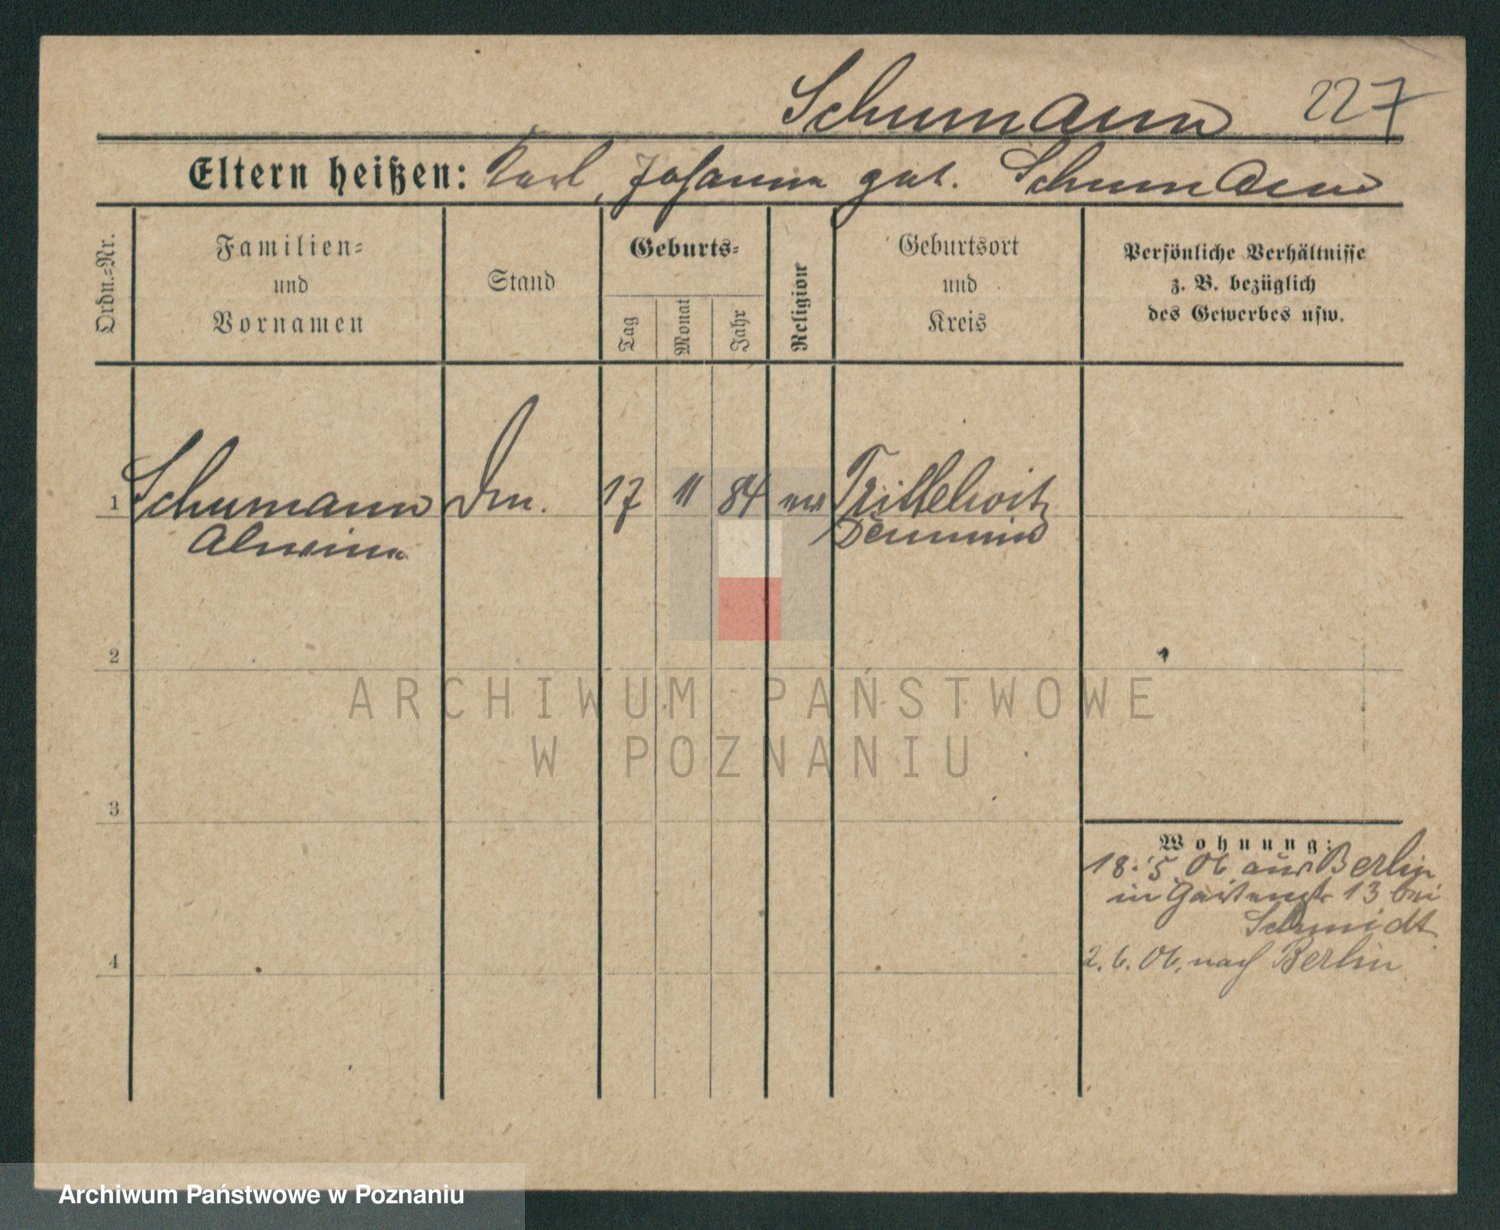 Schumann 227
Eltern heißen: Karl, Johanna geb. Schumann
Ordn.=Nr.
Familien=
und
Vornamen
Stand
Geburts=
Tag
Monat
Jahr
Religion
Geburtsort
und
Kreis
Persönliche Verhältnisse
z. B. bezüglich
des Gewerbes usw.
1 Schumann 17 11 84 ev
Alwine Demmin
2
ARCHIWUM PAŃSTWOWE
W POZNANIU
3
Wohnung:
18.5.06 aus Berlin
in Gartenstr 13 bei
Schmidt
2.6.06. nach Berlin
4
Archiwum Państwowe w Poznaniu